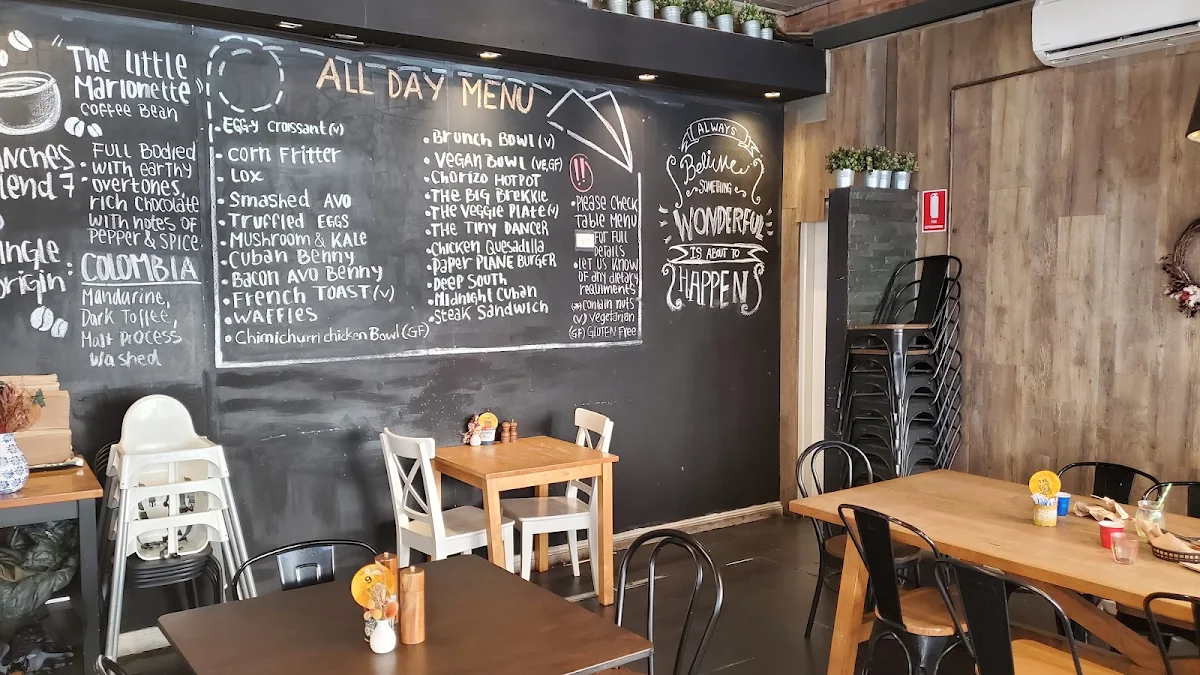 The Little
Marionette
Coffee Bean
Blend 7
Full Bodied
with earthy
overtones,
rich chocolate
with notes of
Pepper & Spice
Single
Origin
COLOMBIA
Mandarine,
Dark Toffee,
Malt process
washed
ALL DAY MENU
• Eggy Croissant (v)
• Corn Fritter
• Lox
• Smashed Avo
• Truffled Eggs
• Mushroom & Kale
• Cuban Benny
• Bacon Avo Benny
• French Toast (v)
• Waffles
• Chimichurri chicken Bowl (GF)
• Brunch Bowl (v)
• Vegan Bowl (VE,GF)
• Chorizo Hotpot
• The Big Brekkie
• The Veggie Plate (v)
• The Tiny Dancer
• Chicken Quesadilla
• Paper Plane Burger
• Deep South
• Midnight Cuban
• Steak Sandwich
!!
• Please Check
Table Menu
For Full
Details
• Let us know
of any dietary
requirments
contain nuts
(V) Vegetarian
(GF) Gluten Free
ALWAYS
Believe
SOMETHING
WONDERFUL
IS ABOUT TO
HAPPEN
9